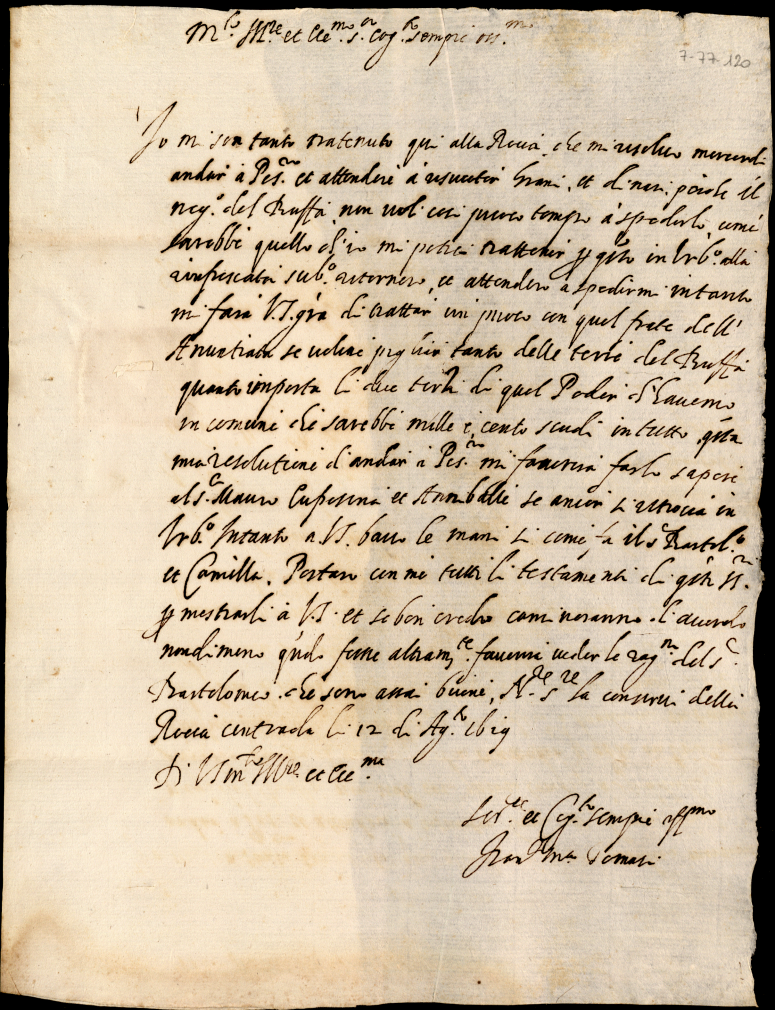 M.to Ill.re et Ecc.mo s.or Cog.to sempre oss.mo
7-77-120
Io mi son tanto tratenuto qui alla Rocca, che mi risolvo mercordi
andar à Pes.ro et attendere à riscuoter grani, et dinari, perche il
neg.o del Ruffa non vol cosi puoco tempo à spederlo, come
sarebbe quello ch'io mi potrei trattenir p q̃sto in Urb.o alla
rinfrescata sub.o ritornero, et attendero a spedirmi intanto
mi farà V.S. gr̃a di trattar un puoco con quel frate dell'
Anuntiata se volesse pigliar tanto delle terre del Ruffa
quanto importa li due terzi di quel Poder ch'havemo
in comune che sarebbe mille e cento scudi in tutto, q̃sta
mia resolutione d'andar à Pes.ro mi favorirà farlo sapere
al s.r Mauro et Annibale se ancor si ritrova in
Urb.o Intanto a V.S. bacio le mani si come fa il s.r Bartol.o
et Camilla. Portaro con me tutti li testamenti di q̃sti ss.ri
p mostrarli à V.S. et se ben credo di averlo
nondimeno q̃ndo fosse altram.te favorirà veder le rag.ni del s.r
Bartolomeo che sono assai buone, N.ro s.re la conservi della
Rocca contrada li 12 di Ag.to 1619
Di V.S. m.to Ill.re et Ecc.ma
Ser.re et Cog.to sempre aff.mo
Fran.co M.a Tomasi